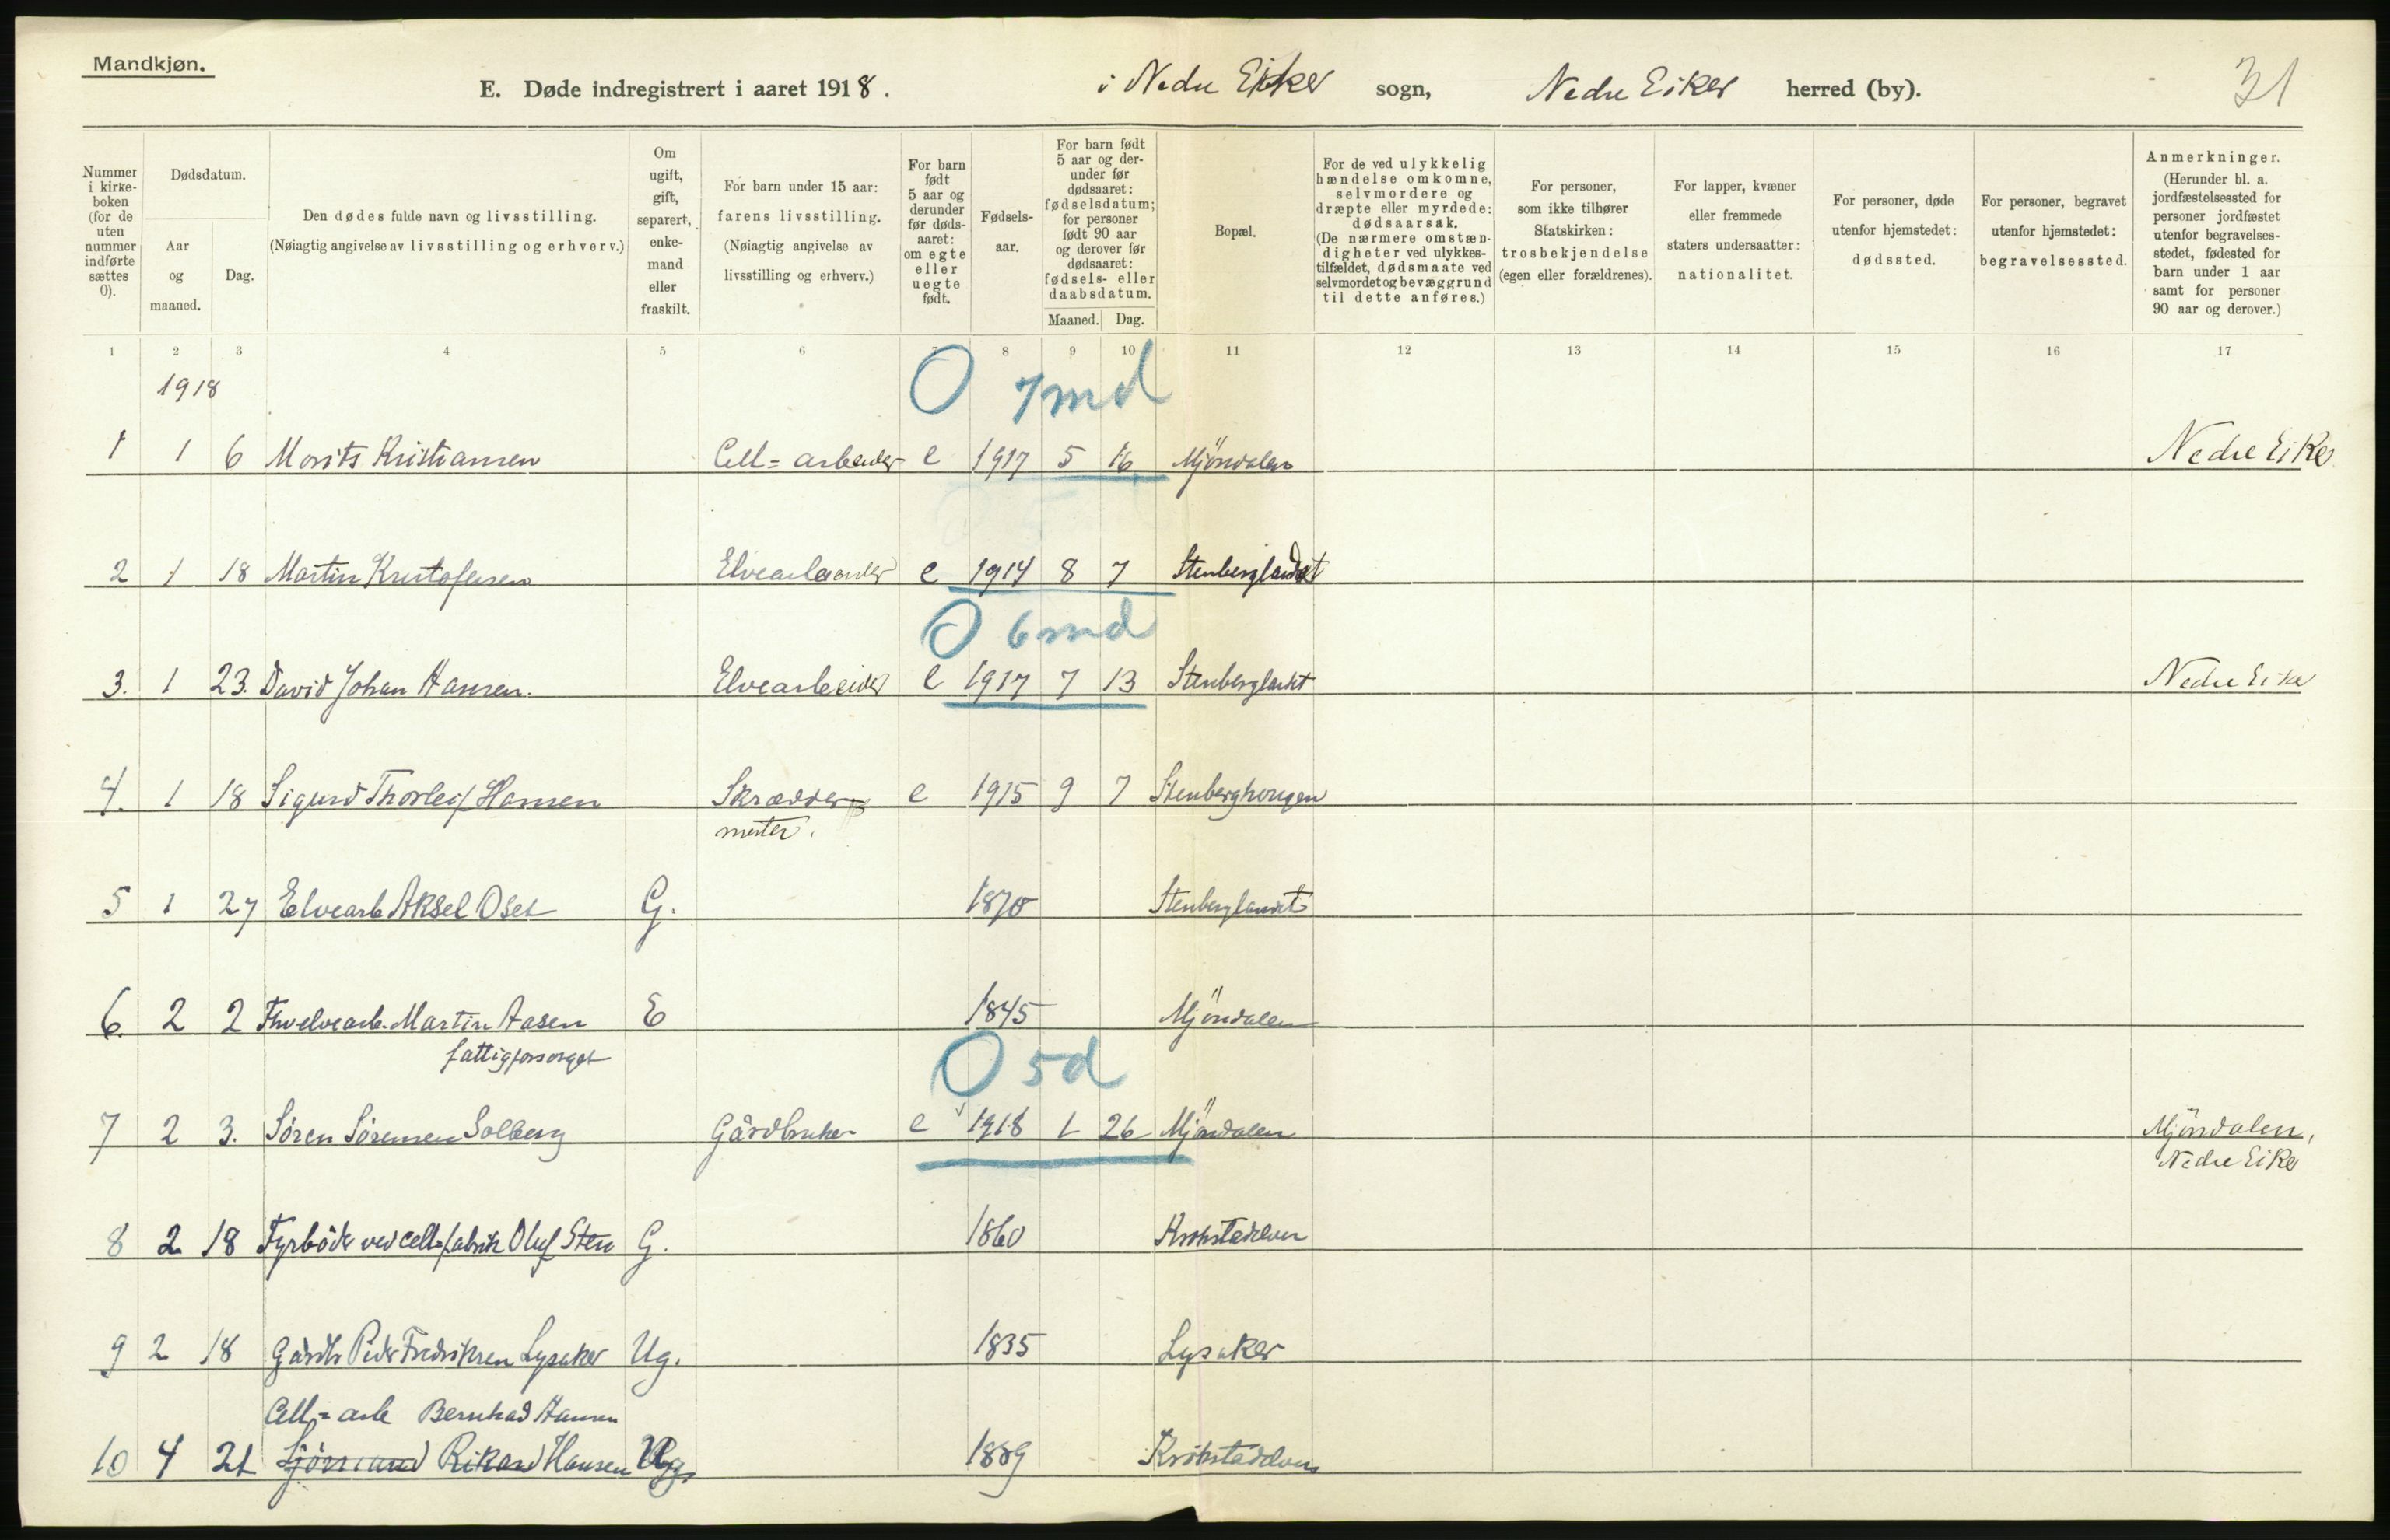 Mandkjøn.
E. Døde indregistrert i aaret 1918. i Nedre Eiker sogn, Nedre Eiker herred (by).
31
Nummer i kirke-boken (for de uten nummer indførte sættes 0).
Dødsdatum.
Aar og maaned.
Dag.
Den dødes fulde navn og livsstilling.
(Nøiagtig angivelse av livsstilling og erhverv.)
Om ugift, gift, separert, enke-mand eller fraskilt.
For barn under 15 aar: farens livsstilling.
(Nøiagtig angivelse av livsstilling og erhverv.)
For barn født 5 aar og derunder før døds-aaret: om egte eller uegte født.
Fødsels-aar.
For barn født 5 aar og der-under før dødsaaret: fødselsdatum; for personer født 90 aar og derover før dødsaaret: fødsels- eller daabsdatum.
Maaned. Dag.
Bopæl.
For de ved ulykkelig hændelse omkomne, selvmordere og dræpte eller myrdede: dødsaarsak.
(De nærmere omstæn-digheter ved ulykkes-tilfældet, dødsmaate ved selvmordet og bevæggrund til dette anføres.)
For personer, som ikke tilhører Statskirken: trosbekjendelse (egen eller forældrenes).
For lapper, kvæner eller fremmede staters undersaatter: nationalitet.
For personer, døde utenfor hjemstedet: dødssted.
For personer, begravet utenfor hjemstedet: begravelsessted.
Anmerkninger.
(Herunder bl. a. jordfæstelsessted for personer jordfæstet utenfor begravelses-stedet, fødested for barn under 1 aar samt for personer 90 aar og derover.)
1 2 3 4 5 6 7 8 9 10 11 12 13 14 15 16 17
1918
0 7 md
1 1 6 Morits Kristiansen Cell=arbeider e 1917 5 16 Mjöndalen Nedre Eiker
2 1 18 Martin Kristofersen Elvearbeider e 1914 8 7 Stenberglandet
0 6 md
3. 1 23. David Johan Hansen. Elvearbeider e 1917 7 13 Stenberglandet Nedre Eiker
4. 1 18 Sigurd Thorleif Hansen Skrædder e 1915 9 7 Stenberghougen
mester.
5 1 27 Elvearb Aksel Oset G. 1870 Stenberglandet
6. 2 2 Fhv elvearb. Martin Aasen E 1845 Mjöndalen
fattigforsørget
0 5 d
7 2 3. Sören Sörensen Solberg Gårdbruker e 1918 1 26 Mjöndalen Mjöndalen,
Nedre Eiker
8 2 18 Fyrböder ved cell=fabrik Oluf Sten G. 1860 Krokstadelven
9 2 18 Gårdb Peder Fredriksen Lysaker Ug. 1835 Lysaker
Cell=arb Bernhad Hansen
10 4 21 Sjömand Rikard Hansen Ug. 1889 Krokstadelven